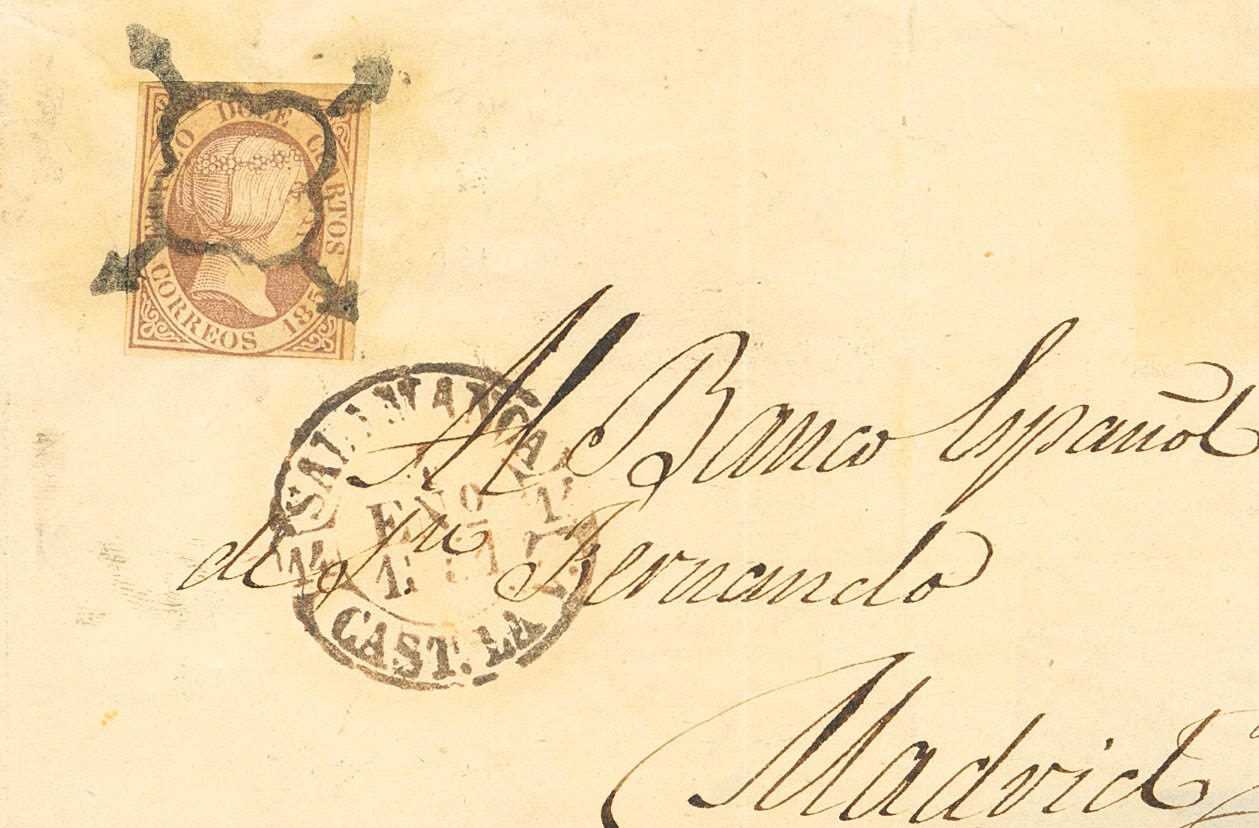 FRANCO DOCE CUARTOS
CORREOS 185
SALAMANCA
ENO
14
CAST. LA V.
Al Banco Español
de Sn Fernando
Madrid